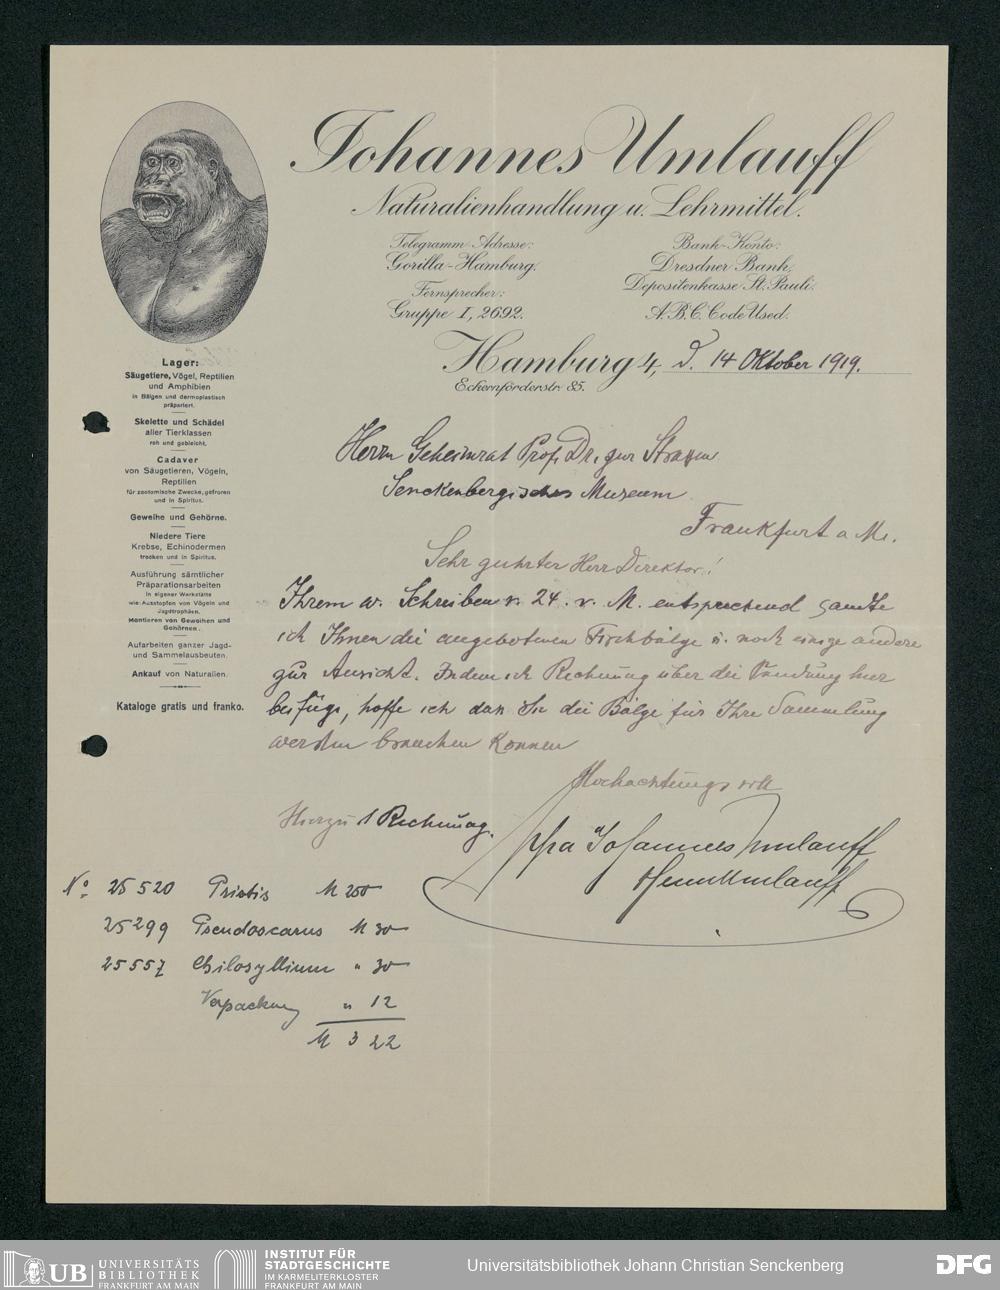 Johannes Umlauff
Naturalienhandlung u. Lehrmittel.
Telegramm-Adresse:
Gorilla-Hamburg.
Fernsprecher:
Gruppe I, 2692.
Bank-Konto:
Dresdner Bank,
Depositenkasse St. Pauli.
A.B.C. Code Used.
Hamburg 4, d. 14 Oktober 1919.
Eckernförderstr. 85.
Lager:
Säugetiere, Vögel, Reptilien
und Amphibien
in Bälgen und dermoplastisch
präpariert.
Skelette und Schädel
aller Tierklassen
roh und gebleicht.
Cadaver
von Säugetieren, Vögeln,
Reptilien
für zootomische Zwecke, gefroren
und in Spiritus.
Geweihe und Gehörne.
Niedere Tiere
Krebse, Echinodermen
trocken und in Spiritus.
Ausführung sämtlicher
Präparationsarbeiten
in eigener Werkstätte
wie: Ausstopfen von Vögeln und
Jagdtrophäen.
Montieren von Geweihen und
Gehörnen.
Aufarbeiten ganzer Jagd-
und Sammelausbeuten.
Ankauf von Naturalien.
Kataloge gratis und franko.
Herrn Geheimrat Prof. Dr. zur Strassen
Senckenbergisches Museum
Frankfurt a M.
Sehr geehrter Herr Direktor!
Ihrem w. Schreiben v. 24. v. M. entsprechend sandte
ich Ihnen die angebotenen Fischbälge u. noch einige andere
zur Ansicht. Indem ich Rechnung über die Sendung hier
beifüge, hoffe ich dass Sie die Bälge für Ihre Sammlung
werden brauchen können
Hochachtungsvoll
Hierzu 1 Rechnung.
ppa Johannes Umlauff
Umlauff
No. 25520 Pristis M 250
25299 Pseudoscarus M 30
25557 Chilosyllium " 30
Verpackung " 12
M 322
UB UNIVERSITÄTS
BIBLIOTHEK
FRANKFURT AM MAIN
INSTITUT FÜR
STADTGESCHICHTE
IM KARMELITERKLOSTER
FRANKFURT AM MAIN
Universitätsbibliothek Johann Christian Senckenberg
DFG